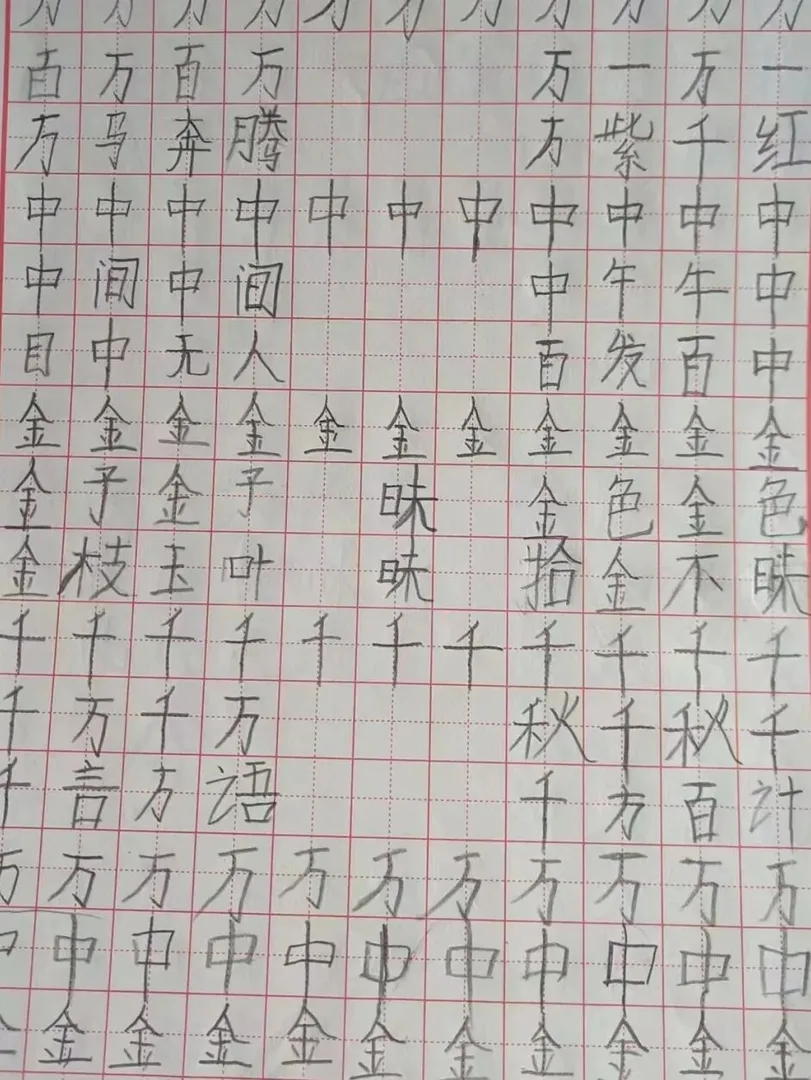 百万百万 万一万一
万马奔腾 万紫千红
中中中中中中中中中中中
中间中间 中午牛中
目中无人 百发百中
金金金金金金金金金金金
金子金子 昧 金色金色
金枝玉叶 昧 拾金不昧
千千千千千千千千千千千
千万千万 秋千秋千
千言万语 千方百计
万万万万万万万万万万万
中中中中中中中中中中中
金金金金金金金金金金金